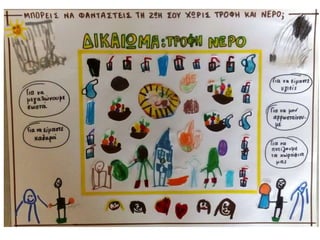 ΜΠΟΡΕΙΣ ΝΑ ΦΑΝΤΑΣΤΕΙΣ ΤΗ ΖΩΗ ΣΟΥ ΧΩΡΙΣ ΤΡΟΦΗ ΚΑΙ ΝΕΡΟ;
ΔΙΚΑΙΩΜΑ: ΤΡΟΦΗ ΝΕΡΟ
Για να
μεγαλώνουμε
σωστά
Για να είμαστε
καθαροί
Για να είμαστε
υγιείς
Για να μην
αρρωσταίνου-
με
Για να
ποτίζουμε
τα χωράφια
μας